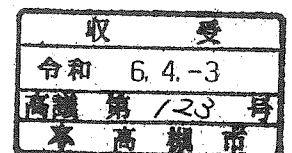 収受
令和 6.4.-3
高議第123号
本高槻市